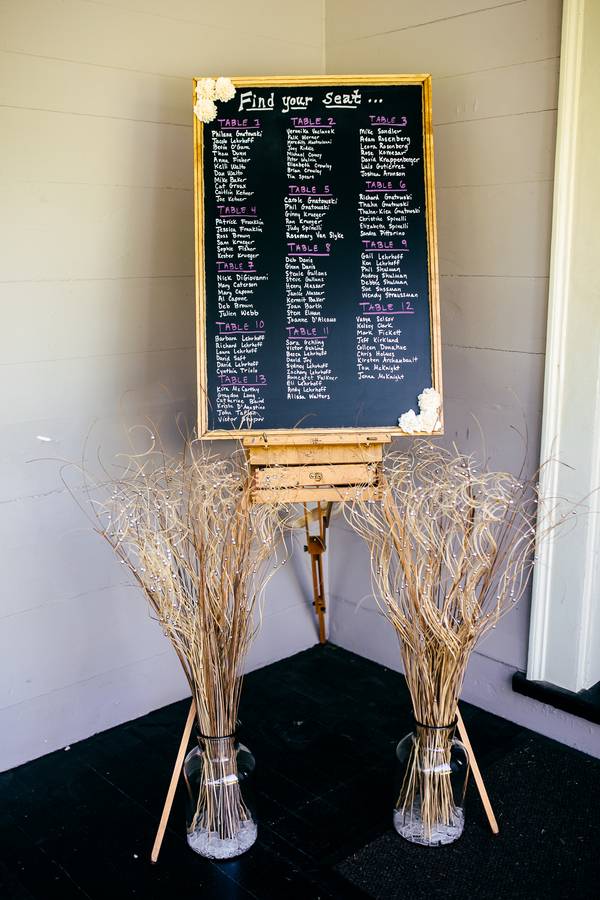 Find your seat ...
TABLE 1
Philena Gnatowski
Jacob Lehrhoff
Benis O'Gara
Thau Dunn
Anna Fisher
Kelli Walto
Dan Walto
Mike Baker
Cat Groux
Caitlin Ketner
Joe Ketner
TABLE 2
Veronika Vaclavek
Falk Werner
Meredith
Joey Riddle
Michael Coney
Peter
Elizabeth Crowley
Brian Crowley
Tim Speers
TABLE 3
Mike Sandler
Adam Rosenberg
Leora Rosenberg
Rose Komesar
David Krappenberger
Luis Gutierrez
Joshua Aronson
TABLE 4
Patrick Franklin
Jessica Franklin
Ross Brown
Sam Krueger
Sophie Fisher
Kester Krueger
TABLE 5
Carole Gnatowski
Phil Gnatowski
Ginny Krueger
Ron Krueger
Judy Spinelli
Rosemary Van Slyke
TABLE 6
Richard Gnatowski
Thahn Gnatowski
Thahn-Kiea Gnatowski
Christine Spinelli
Elizabeth Spinelli
Sandra Pittorino
TABLE 7
Nick DiGiovanni
Mary Caterson
Mary Capone
Al Capone
Deb Brown
Julien Webb
TABLE 8
Deb Denis
Glenn Denis
Stacie Gallans
Steve Gallans
Henry Massar
Janice Massar
Kermit Baker
Joan Barth
Stan Elman
Joanne D'Alcomo
TABLE 9
Gail Lehrhoff
Ken Lehrhoff
Phil Shulman
Audrey Shulman
Debbie Shulman
Sue Sussman
Wendy Straussman
TABLE 10
Barbara Lehrhoff
Richard Lehrhoff
Laura Lehrhoff
David Saft
David Lehrhoff
Cynthia Triolo
TABLE 11
Sara Gehling
Victor Gehling
Becca Lehrhoff
David Joy
Sydney Lehrhoff
Zachary Lehrhoff
Annegret Falkner
Eli Lehrhoff
Andy Lehrhoff
Alissa Walters
TABLE 12
Vanya Selsov
Kelsey Clark
Mark Fickett
Jeff Kirkland
Colleen Donahue
Chris Holmes
Kirsten Archambault
Tom McKnight
Jenna McKnight
TABLE 13
Kira McCarthy
Graydon Long
Catherine Baird
Krista D'Agostino
John Taylor
Victor